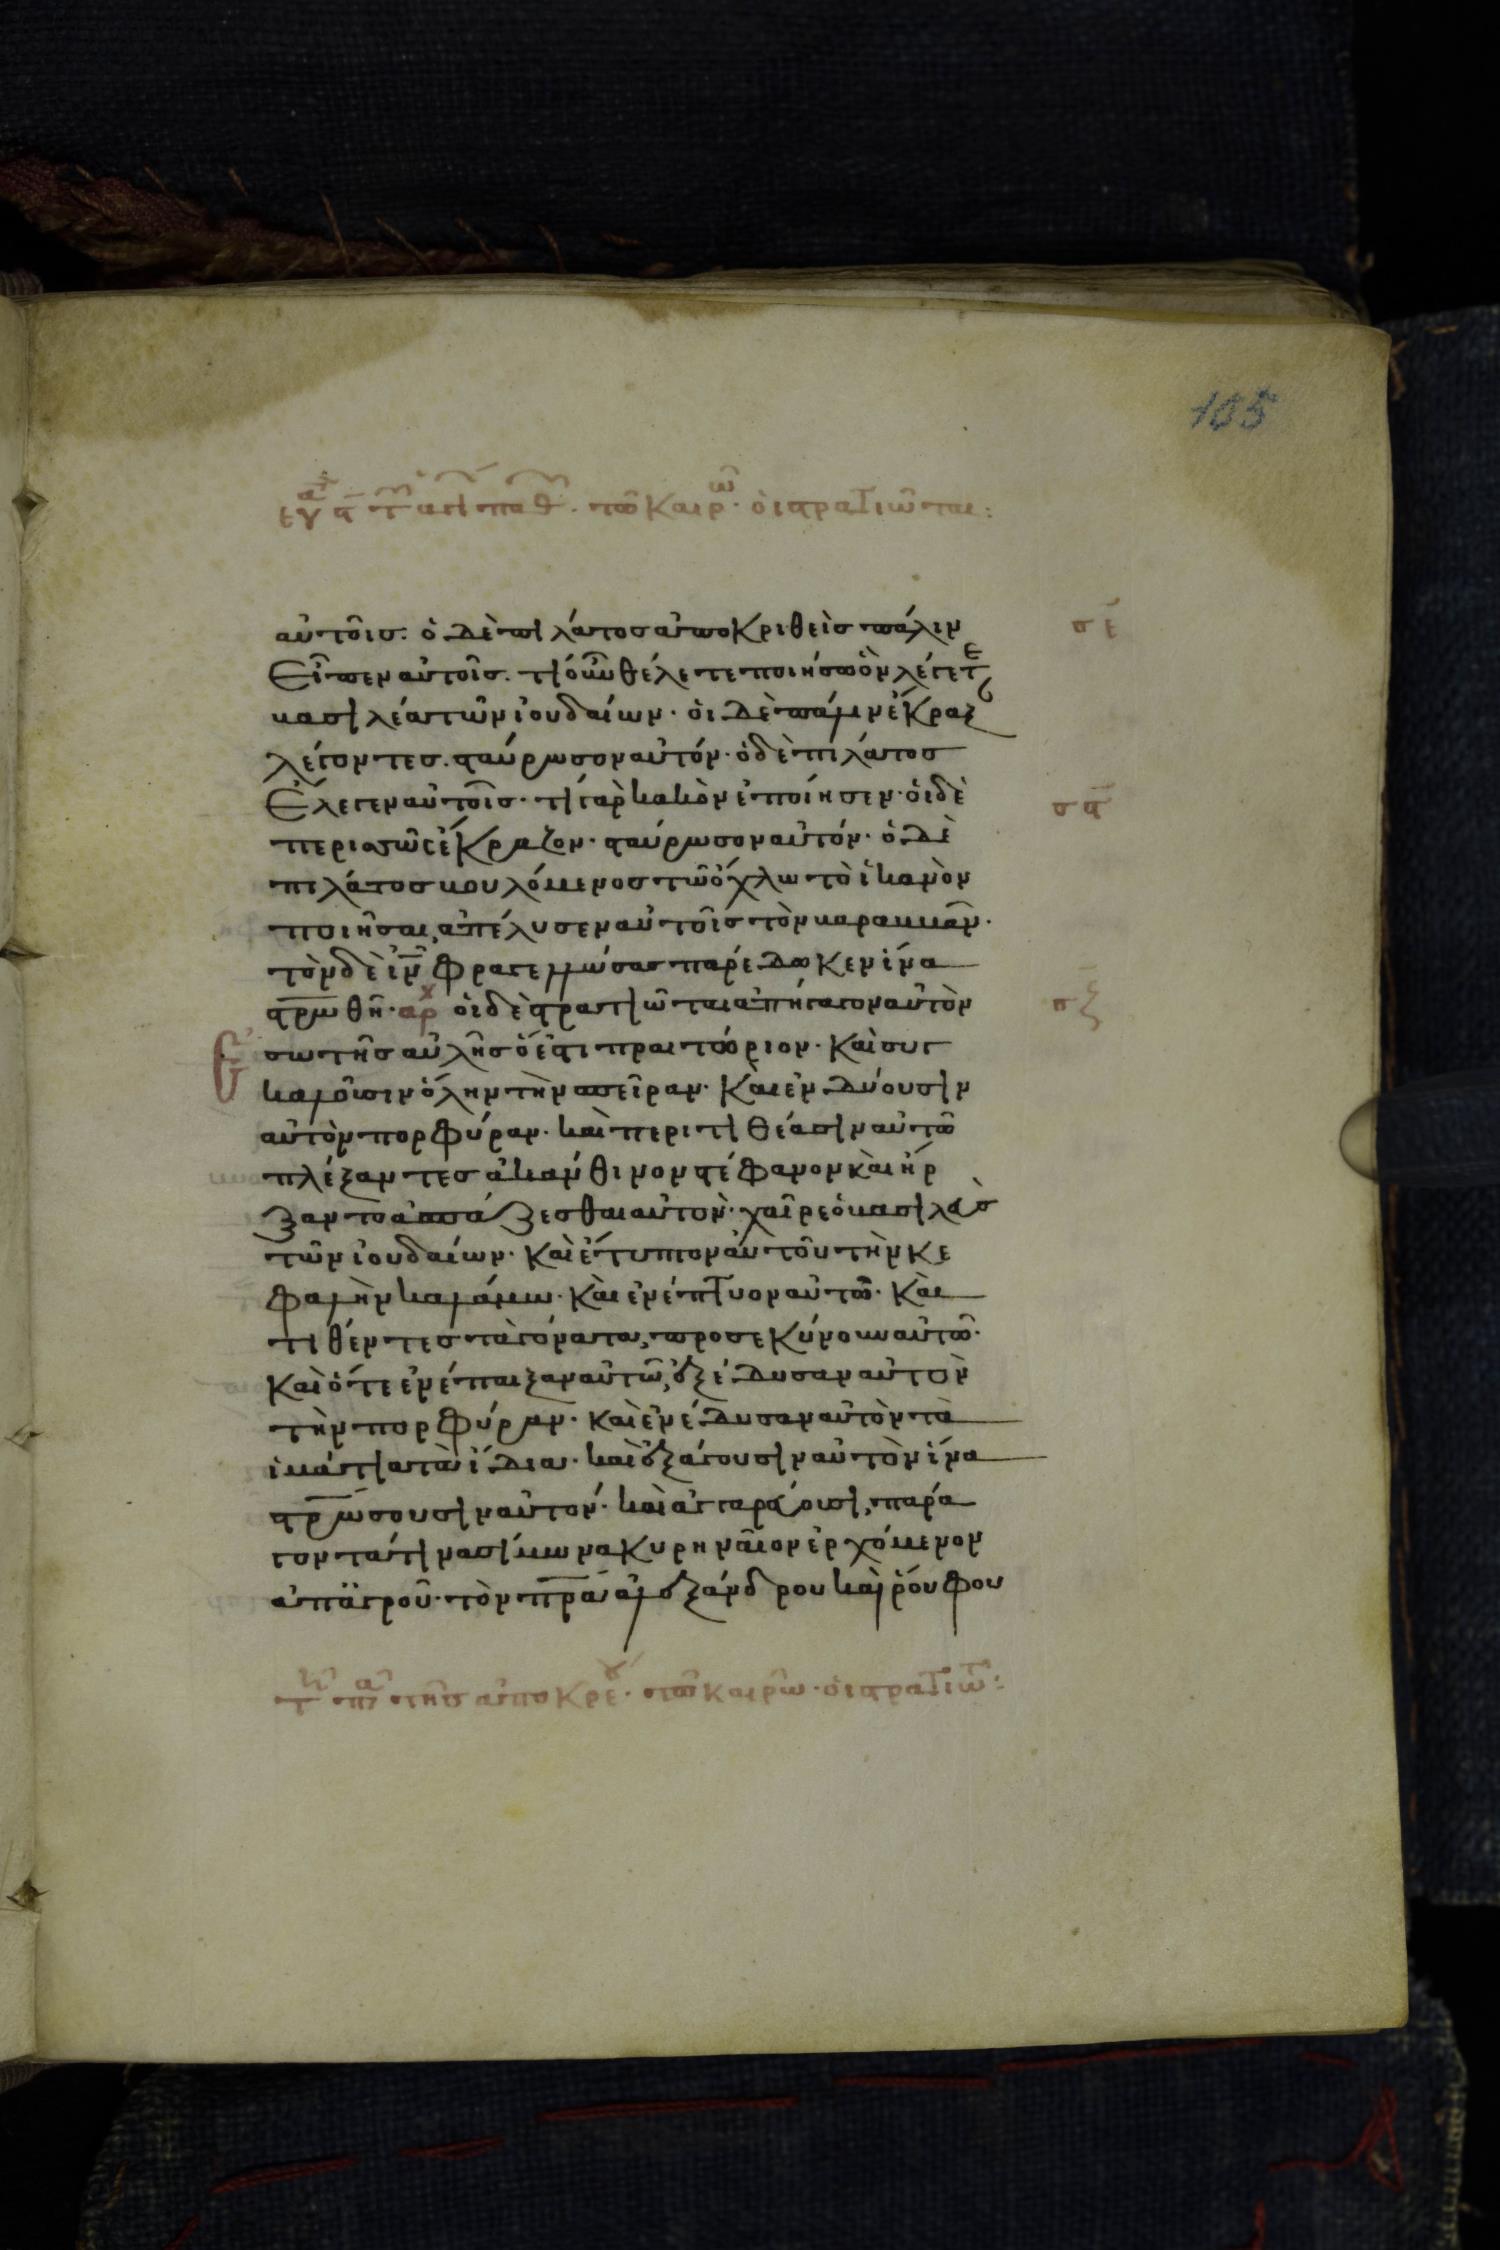 105
τῶ καιρῶ· οἱ στρατιῶται:
αὐτοῖς· ὁ δὲ πιλάτος ἀποκριθεὶς πάλιν
σε
εἶπεν αὐτοῖς· τί οὖν θέλετε ποιήσω ὃν λέγετε
βασιλέα τῶν ἰουδαίων· οἱ δὲ πάλιν ἔκραζ
λέγοντες· σταύρωσον αὐτόν· ὁ δὲ πιλάτος
ἔλεγεν αὐτοῖς· τί γὰρ κακὸν ἐποίησεν· οἱ δὲ
σϛ
περισσῶς ἔκραζον· σταύρωσον αὐτόν· ὁ δὲ
πιλάτος βουλόμενος τῶ ὄχλω τὸ ἱκανὸν
ποιῆσαι, ἀπέλυσεν αὐτοῖς τὸν βαραββᾶν·
τὸν δὲ ἰν φραγελλώσας παρέδωκεν ἵνα
στρωθῆ· αρχ οἱ δὲ στρατιῶται ἀπήγαγον αὐτὸν
σξ
ἔσω τῆς αὐλῆς ὅ ἐστι πραιτώριον· καὶ συγ
καλοῦσιν ὅλην τὴν σπεῖραν· καὶ ἐνδύουσιν
αὐτὸν πορφύραν· καὶ περιτιθέασιν αὐτῶ
πλέξαντες ἀκάνθινον στέφανον καὶ ἤρ
ξαντο ἀσπάζεσθαι αὐτόν· χαῖρε ὁ βασιλεὺς
τῶν ἰουδαίων· καὶ ἔτυπτον αὐτοῦ τὴν κε
φαλὴν καλάμω· καὶ ἐνέπτυον αὐτῶ· καὶ
τιθέντες τὰ γόνατα, προσεκύνουν αὐτῶ·
καὶ ὅτε ἐνέπαιξαν αὐτῶ, ἐξέδυσαν αὐτὸν
τὴν πορφύραν· καὶ ἐνέδυσαν αὐτὸν τὰ
ἱμάτια τὰ ἴδια· καὶ ἐξάγουσιν αὐτὸν ἵνα
στρώσουσιν αὐτόν· καὶ ἀγγαρεύουσι, παρά
γοντά τινα σίμωνα κυρηναῖον ἐρχόμενον
ἀπ' ἀγροῦ· τὸν πρα ἀλεξάνδρου καὶ ῥούφου
τῆς ἀποκρε· τῶ καιρῶ· οἱ στρατιῶ: